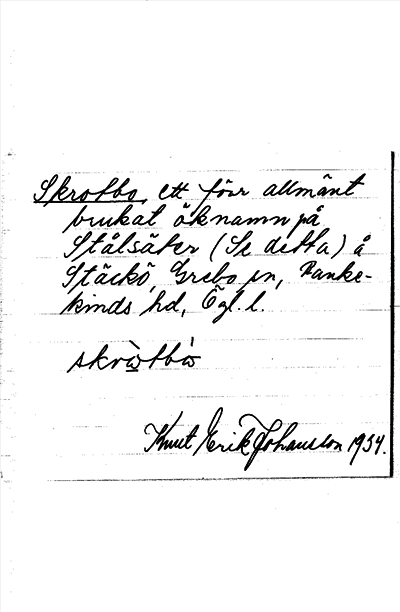 Skrotbo, ett förr allmänt
brukat öknamn på
Stålsäter (Se detta) å
Stäckö, Grebo sn, Banke-
kinds hd, Ögl. l.
skrò̱tbò̱
Knut Erik Johansson 1934.